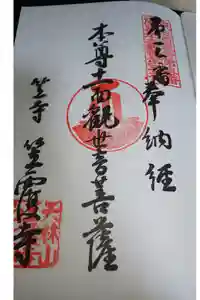 奉納経
本尊十一面觀世音菩薩
笠寺 笠覆寺
天林山